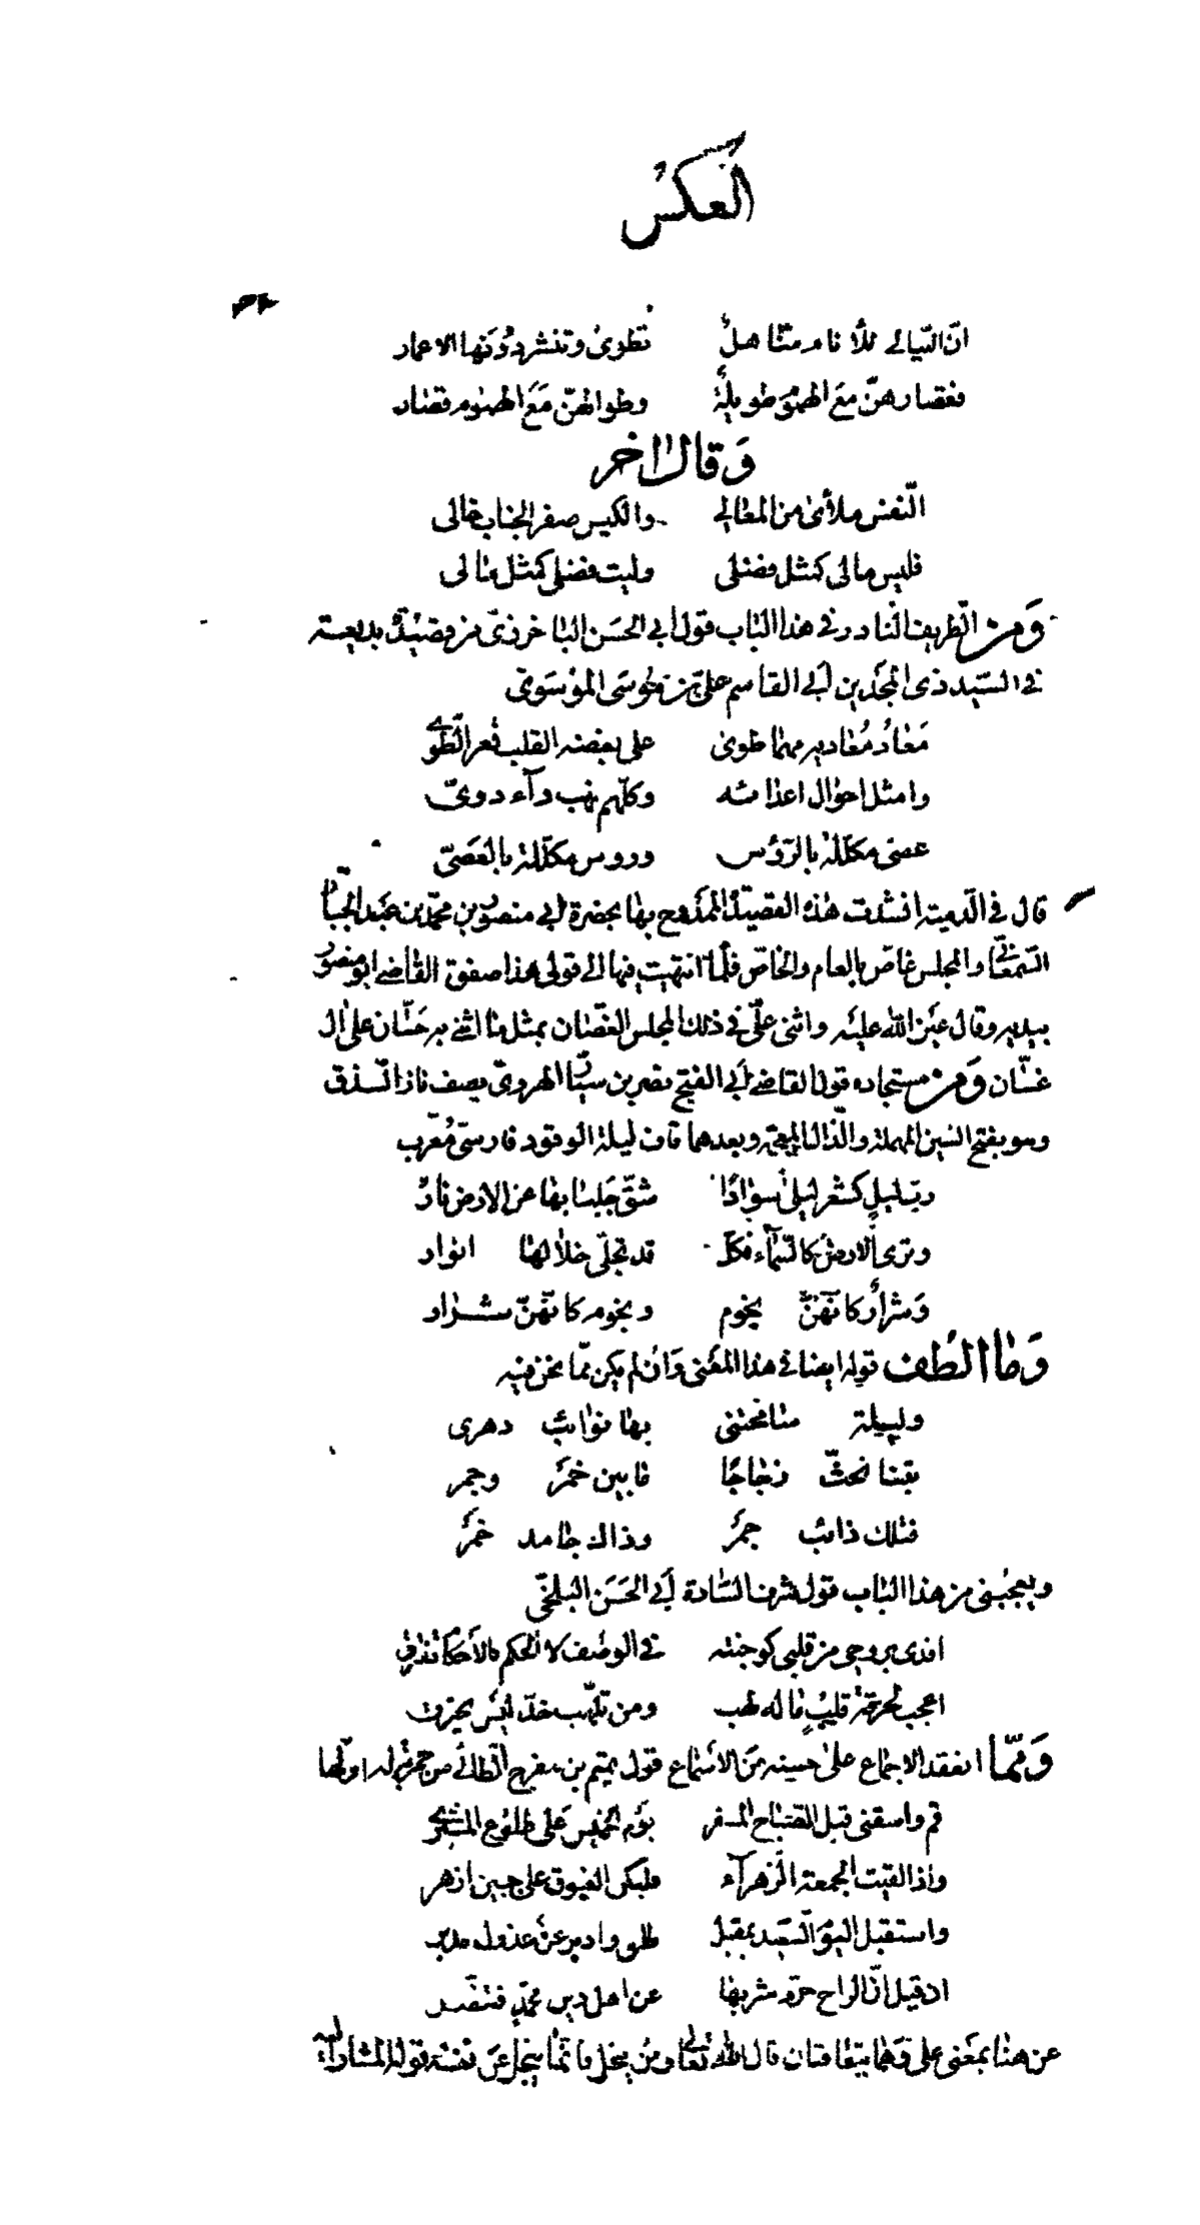 العكس
انّ اللّيالي للأنام مناهلٌ تطوى وتنشر دونها الاعمار
فقصارهنّ مع الهموم طويلةٌ وطوالهنّ مع الهموم قصار
وقال اخر
النّفس ملأى من المعالي والكيس صفر الجناب خالى
فليس مالى كمثل فضلى وليت فضلى كمثل مالى
ومن الطّريف النادر في هذا الباب قول ابي الحسن الباخرزىّ من قصيدة بديعة
في السيّد ذى المجدين ابي القاسم علىّ بن موسى الموسوىّ
معاد معاديه مهما طوى على بغضه القلب قعر الطّوىّ
وامثل احوال اعدائه وكلّهم نهب دآء دوىّ
عصى مكلّلة بالرّؤس وروس مكلّلة بالعصىّ
قال في الدّمية انشدت هذه القصيدة الممدوح بها بحضرة ابي منصور بن محمّد بن عبد الجبّار
السّمعانّى والمجلس غاصّ بالعام والخاصّ فلمّا انتهيت فيها الى قولى هذا صفق القاضي ابو منصور
بيديه وقال عين الله عليه واثنى علىّ في ذلك المجلس الغصّان بمثل ما اثنى به حسّان على ال
غسّان ومن مستجاده قول القاضي ابي الفتح نصر بن سيّار الهروىّ يصف نار السّذق
وهو بفتح السين المهملة والذّال المعجمة وبعدهما قاف ليلة الوقود فارسىّ معرّب
ربّ ليلٍ كشعر ليلى سوادًا شقّ جلبابها عن الارض نار
وترى الارض كالسّماء فكلّ قد تجلّى خلالها انوار
وشرارٌ كانّهنّ نجوم ونجوم كانّهنّ شرار
وما الطف قوله ايضا في هذا المعنى وان لم يكن ممّا نحن فيه
وليلة سامحتنى بها نوائب دهرى
بتنا نحثّ زجاجًا ما بين خمر وجمر
فتلك ذائب جمر وذاك جامد خمر
ويعجبنى من هذا الباب قول شرف السّادة ابي الحسن البلخى
افدى بروحى من قلبى كوجنته في الوصف لا الحكم فالأحكام تفترق
اعجب لحرقة قلبٍ ما له لهب ومن تلهّب خدّ ليس يحترق
وممّا انعقد الاجماع على حسنه من الأسماع قول تميم بن مفرج الطّائي من خمريّة له اوّلها
قم واسقنى قبل الصّباح المسفر يوم الخميس على طلوع المشترى
واذا لقيت الجمعة الزهرآء فليكن الغبوق على جبين ازهر
واستقبل اليوم السّعيد بمقبل طلق وادبر عن عذول مدبر
ان قيل انّ الراح حرّم شربها عن اهل دين محمّدٍ فتنصّر
عن هنا بمعنى على وهما يتعاقبان قال الله تعالى ومن يبخل فانّما يبخل عن نفسه قوله المشار اليه